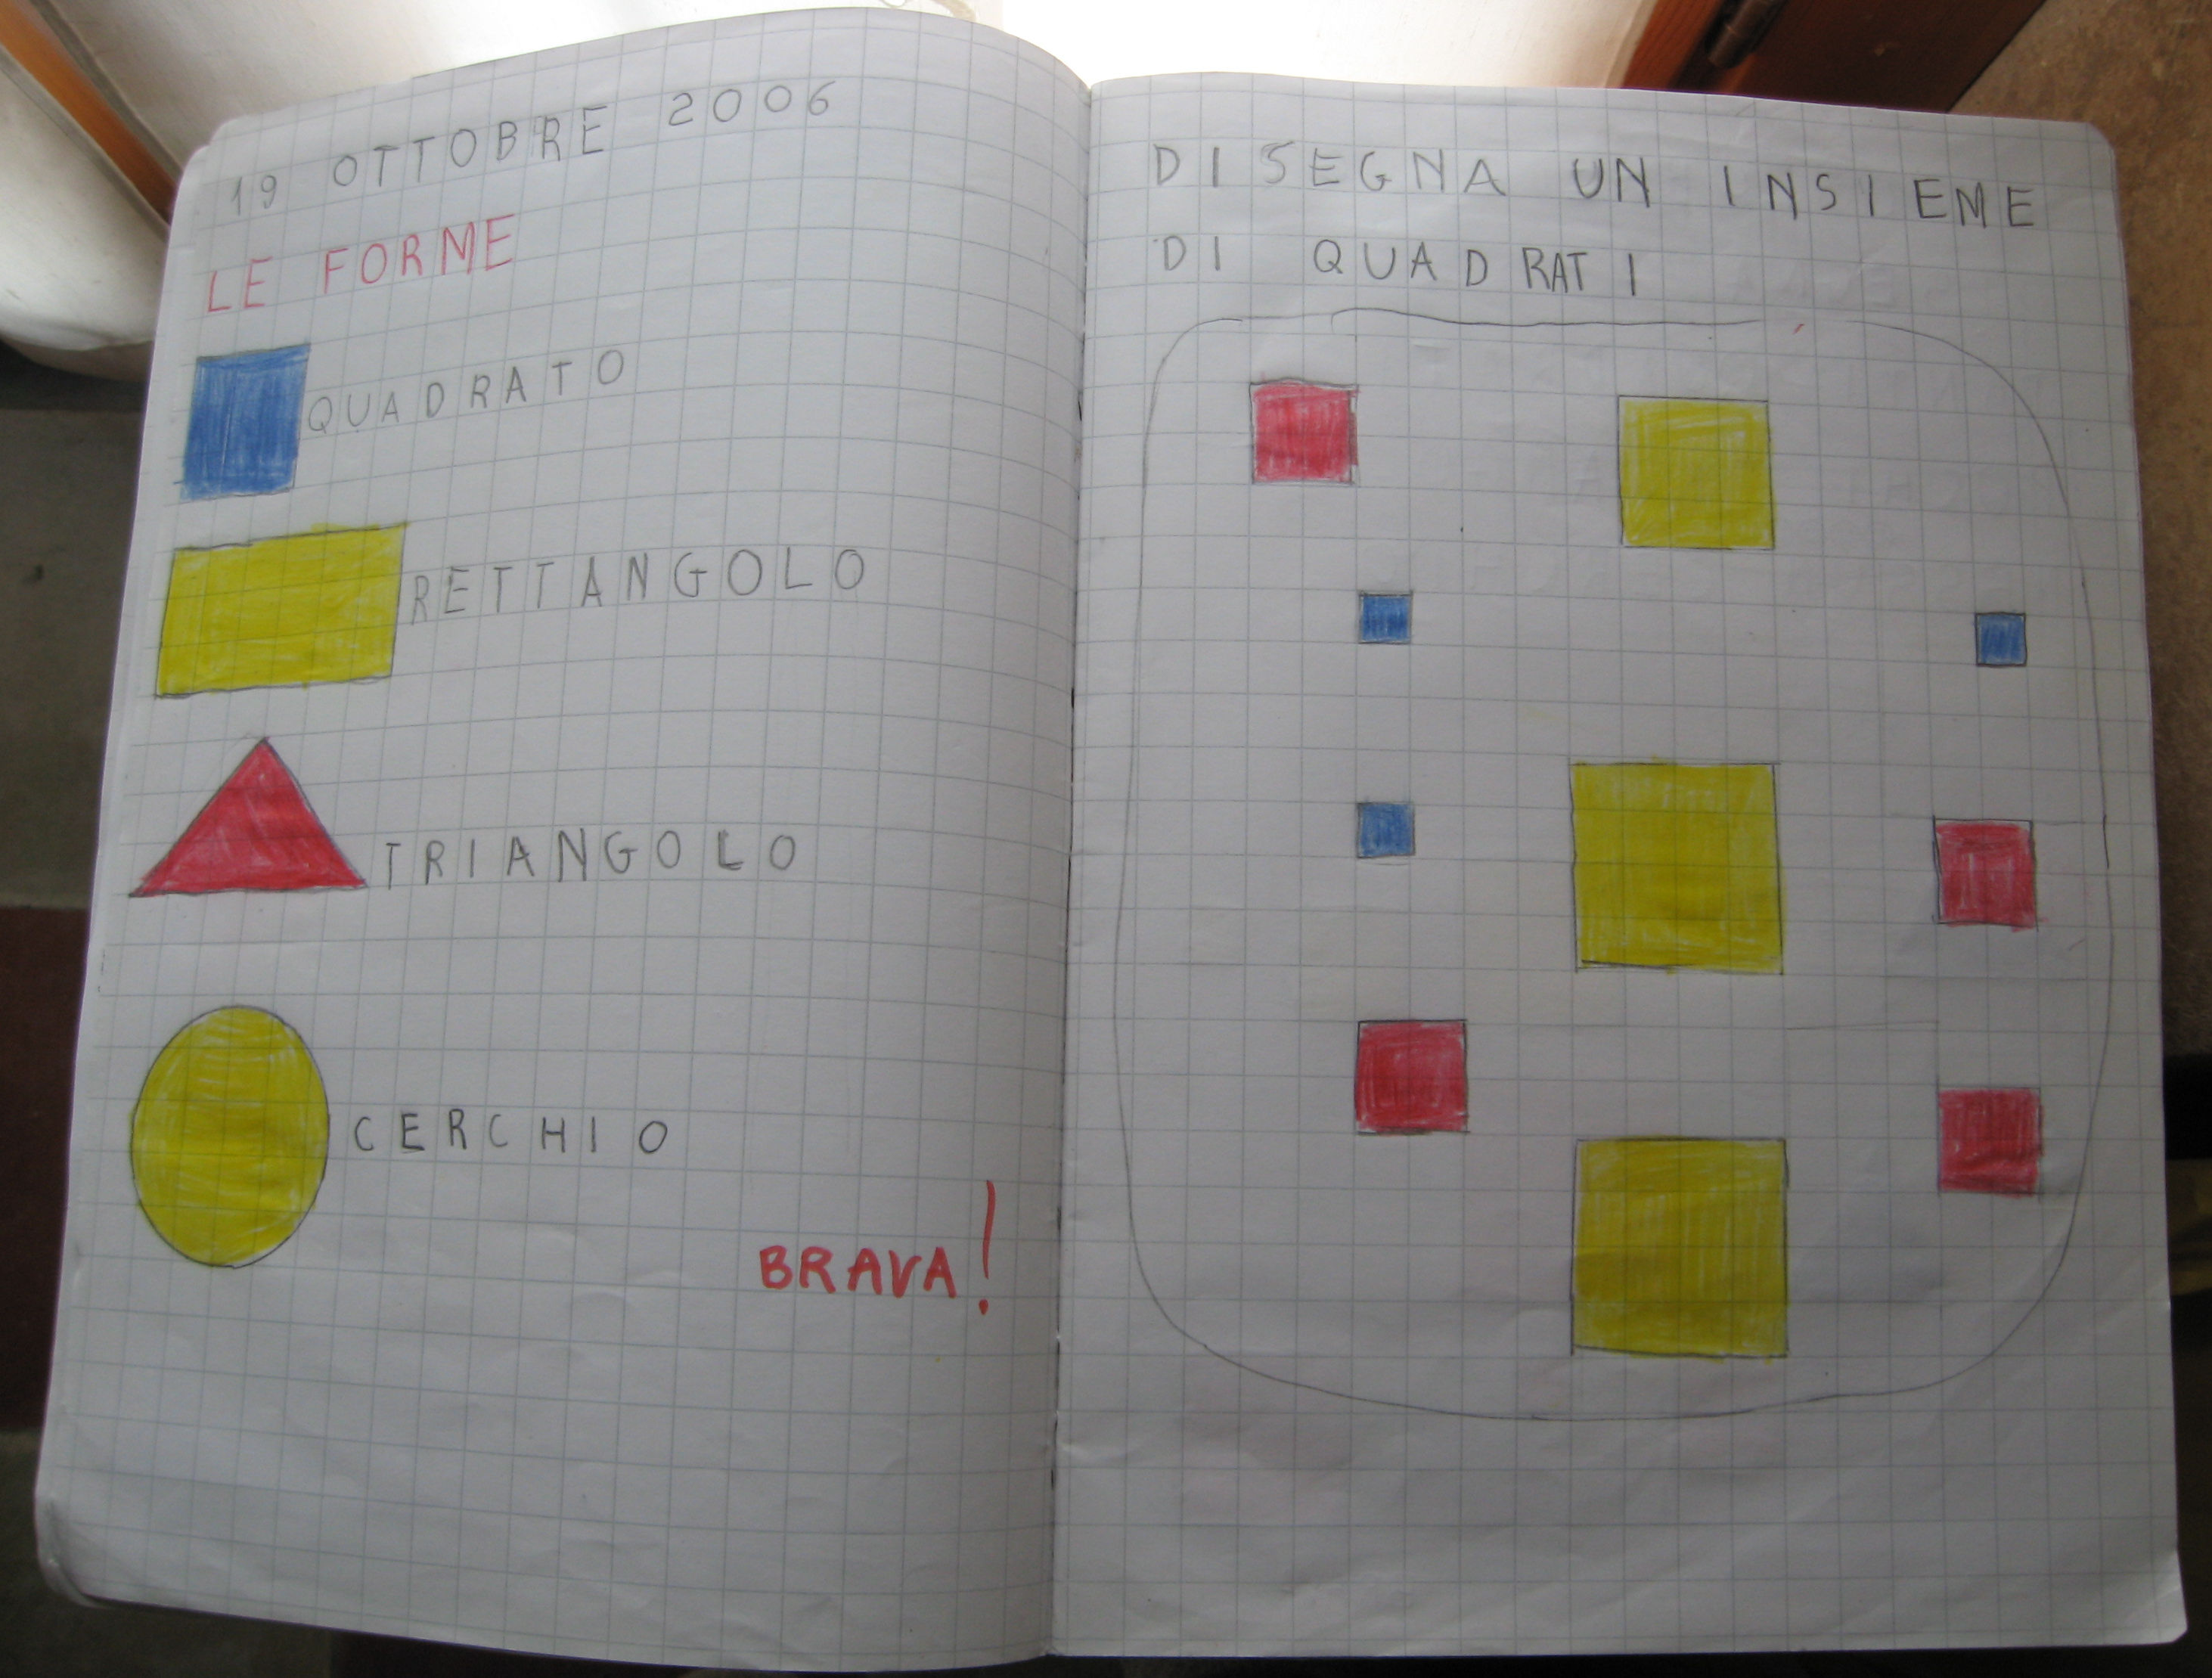 19 OTTOBRE 2006
LE FORME
QUADRATO
RETTANGOLO
TRIANGOLO
CERCHIO
BRAVA!
DISEGNA UN INSIEME
DI QUADRATI